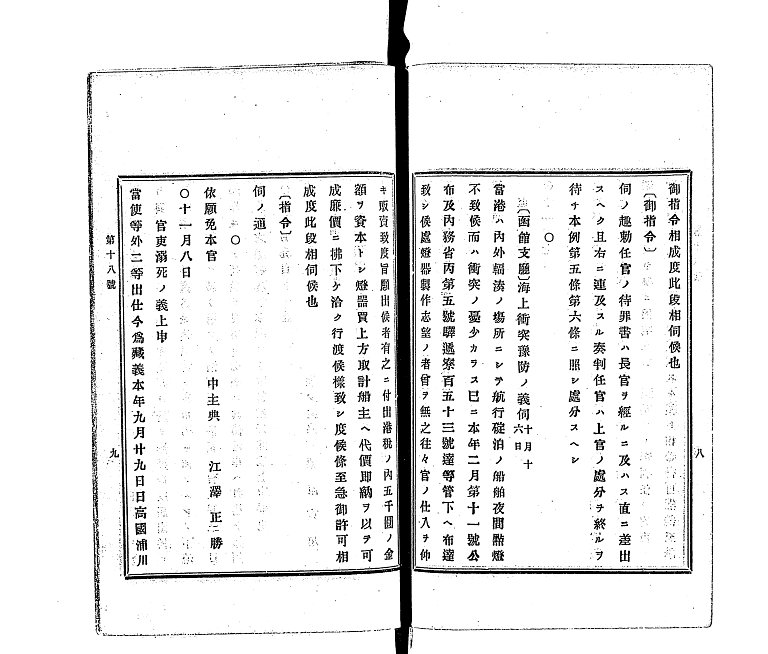 御指令相成度此段相伺候也
〔御指令〕
伺ノ趣勅任官ノ待罪書ハ長官ヲ經ルニ及ハス直ニ差出
スヘク且右ニ連及スル奏判任官ハ上官ノ處分ヲ終ルヲ
待チ本例第五條第六條ニ照シ處分スヘシ
〇
〔函館支廳〕海上衝突豫防ノ義伺 十月十六日
當港ハ內外輻湊ノ場所ニシテ航行碇泊ノ船舶夜間點燈
不致候而ハ衝突ノ憂少カラス已ニ本年二月第十一號公
布及內務省丙第五號驛遞寮百五十三號達等管下ヘ布達
致シ候處燈器製作志望ノ者曾ヲ無之往々官ノ仕入ヲ仰
八
キ販賣致度旨願出候者有之ニ付出港稅ノ內五千圓ノ金
額ヲ資本トシ燈器買上方取計船主ヘ代價即納ヲ以テ可
成廉價ニ拂下ケ洽ク行渡候樣致シ度候條至急御許可相
成度此段相伺候也
〔指令〕
伺ノ通
〇
依願免本官　中主典　江澤正勝
〇十一月八日
官吏溺死ノ義上申
當使等外二等出仕今爲藏義本年九月廿九日日高國浦川
第十八號
九